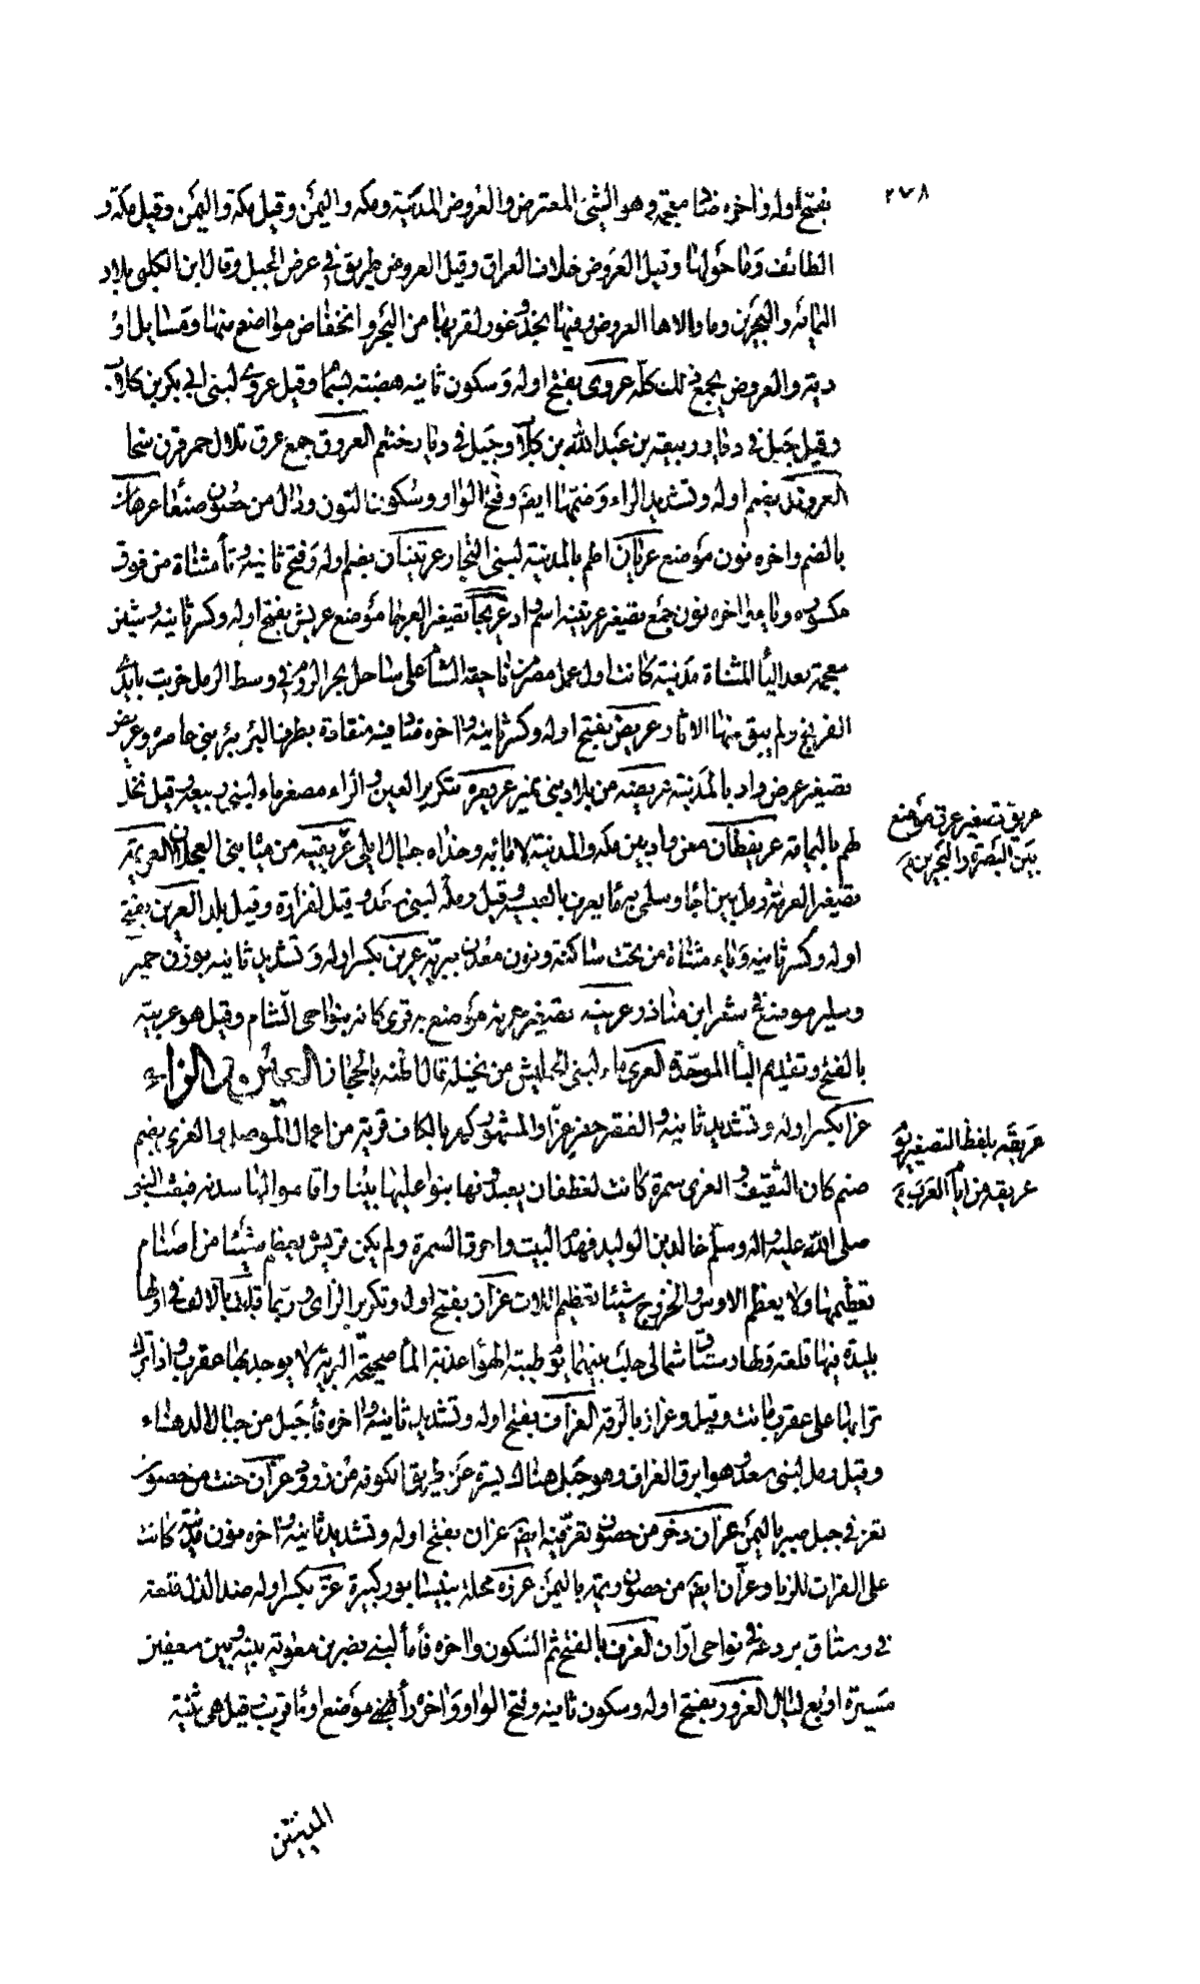 ٢٧٨
بفتح اوله واخره ضاد معجمة وهو الشئ المعترض والعروض المدينة ومكه واليمن وقيل مكة واليمن وقيل مكة و
الطائف وما حولها وقيل العروض خلاف العراق وقيل العروض طريق في عرض الجبل وقال ابن الكلبي بلاد
اليمامه والبحرين وما والاها العروض وفيها نجد وغور لقربها من البحر وانخفاض مواضع منها ومسايل او
دية والعروض يجمع ذلك كله عروى بفتح اوله وسكون ثانيه هضبة بشما وقيل عروى لبنى ابي بكر بن كلاب
وقيل جبل في ديار ربيعة بن عبدالله بن كلاب وجبل في ديار خثعم العروق جمع عرق تلال حمر قرب سجا
العروند بضم اوله وتشديد الراء وضمها ايضم وفتح الواو وسكون النون ودال من حصون صنعا عرهان
بالضم واخره نون موضع عريان اطم بالمدينة لبنى النجار عريتنان بضم اوله وفتح ثانيه وتأ مثناة من فوق
مكسوره واخره نون جمع تصغير عرتنه اسم واد عريجا تصغير العرجا موضع عريش بفتح اوله وكسر ثانيه وشين
معجمة بعد اليأ المثناة مدينة كانت اول عمل مصر من ناحية الشأم على ساحل بحر الروم في وسط الرمل خربت بايدى
الفرنج ولم يبق منها الا الاثار عريض بفتح اوله وكسر ثانيه واخره ضاد قنه منقادة بطرف البئر بئر بنى حاصره وعريض
تصغير عرض واد بالمدينة عريضه من بلاد بنى نمير عريعره بتكرير العين والراء مصغر ماء لبنى ربيعة وقيل نخل
لهم باليمامة عريفطان معن واد بين مكه والمدينة لا ماء به وحذاه جبال ابلى عريقيه من مياه بنى العجلان العريمة
تصغير العرمة رمل بين اجا وسلمى به ماء يعرف بالعبسيه وقيل رملة لبنى سعد وقيل لفزارة وقيل بلد العرين بفتح
اوله وكسر ثانيه وياء مثناة من تحت ساكنة ونون معدن بتربة عرين بكسر اوله وتشديد ثانيه بوزن خمير
وسكير موضع في شعر ابن مناذر عرينه تصغير عرنه موضع به قرى كانه بنواحى الشام وقيل هو عربيّة
بالفتح وتقديم البأ الموحدة العرى ماء لبنى الحليس من بخيلة قال اظنه بالحجاز العين مع الزاء
عزا بكسر اوله وتشديد ثانيه والقصر جفر عزا والمشهور كمر بالكاف قرية من اعمال الموصل والعزى بضم
صنم كان لثقيف والعزى سمرة كانت لغطفان يعبدونها بنوا عليها بيتا واقاموا لها سدنه فبعث النبى
صلى الله عليه واله وسلم خالد بن الوليد فهدم البيت واحرق السمرة ولم يكن قريش يعظم شيئا من اصنام
تعظيمها ولا يعظم الاوس والخزرج شيئا تعظيم اللات عزاز بفتح اوله وتكرير الزاى وربما قيلت بالالف في اولها
بليدة فيها قلعة ولها رستاق شمالى حلب بينهما يوم طيبة الهوا عذبة المأ صحيحة التربة لا يوجد بها عقرب واذا ترك
ترابها على عقرب ماتت وقيل وعزاز بالرقة العزاف بفتح اوله وتشديد ثانيه واخره فأ جبل من جبال الدهناء
وقيل رمل لبنى سعد وهو ابرق العزاف وهو جبل هناك يسرة عن طريق الكوفه من زرود عزان خبت من حصون
تعز في جبل صبر باليمن عزان ذخر من حصون تعز فيه ايضم عزان بفتح اوله وتشديد ثانيه واخره نون مدينة كانت
على الفرات للزبا وعزان ايضم من حصون ريمه باليمن عزره محلة بنيسابور كبيرة عز بكسر اوله ضد الذل قلعة
في رستاق بردعة في نواحى ارّان العزف بالفتح ثم السكون واخره فأ مأ لبنى نضر بن معوية بينه وبين سعفين
مسيرة اربع ليال العزور بفتح اوله وسكون ثانيه وفتح الواو واخره رأ موضع او مأ قريب قيل هى ثنية
المدينتين
عريق تصغير عرق موضع
بين البصرة والبحرين م
عريقه بلفظ التصغير يوم
عريقه من ايام العرب م